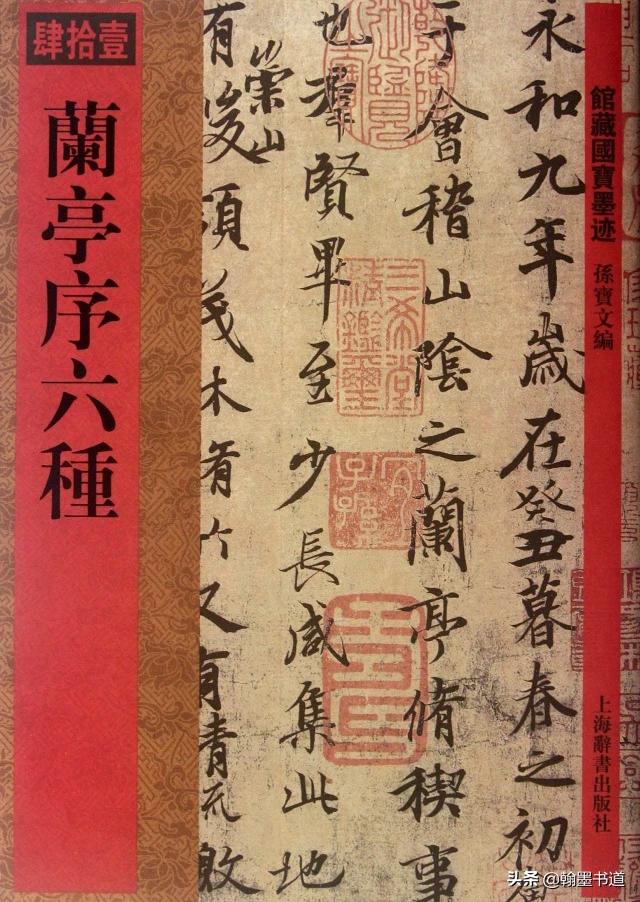 肆拾壹
蘭亭序六種
館藏國寶墨迹
孫寶文編
上海辭書出版社
永和九年歲在癸丑暮春之初
于會稽山陰之蘭亭脩稧事
也羣賢畢至少長咸集此地
崇山
有峻領茂林脩竹又有清流激
三希堂精鑑璽
宜子孫
头条 @翰墨书道